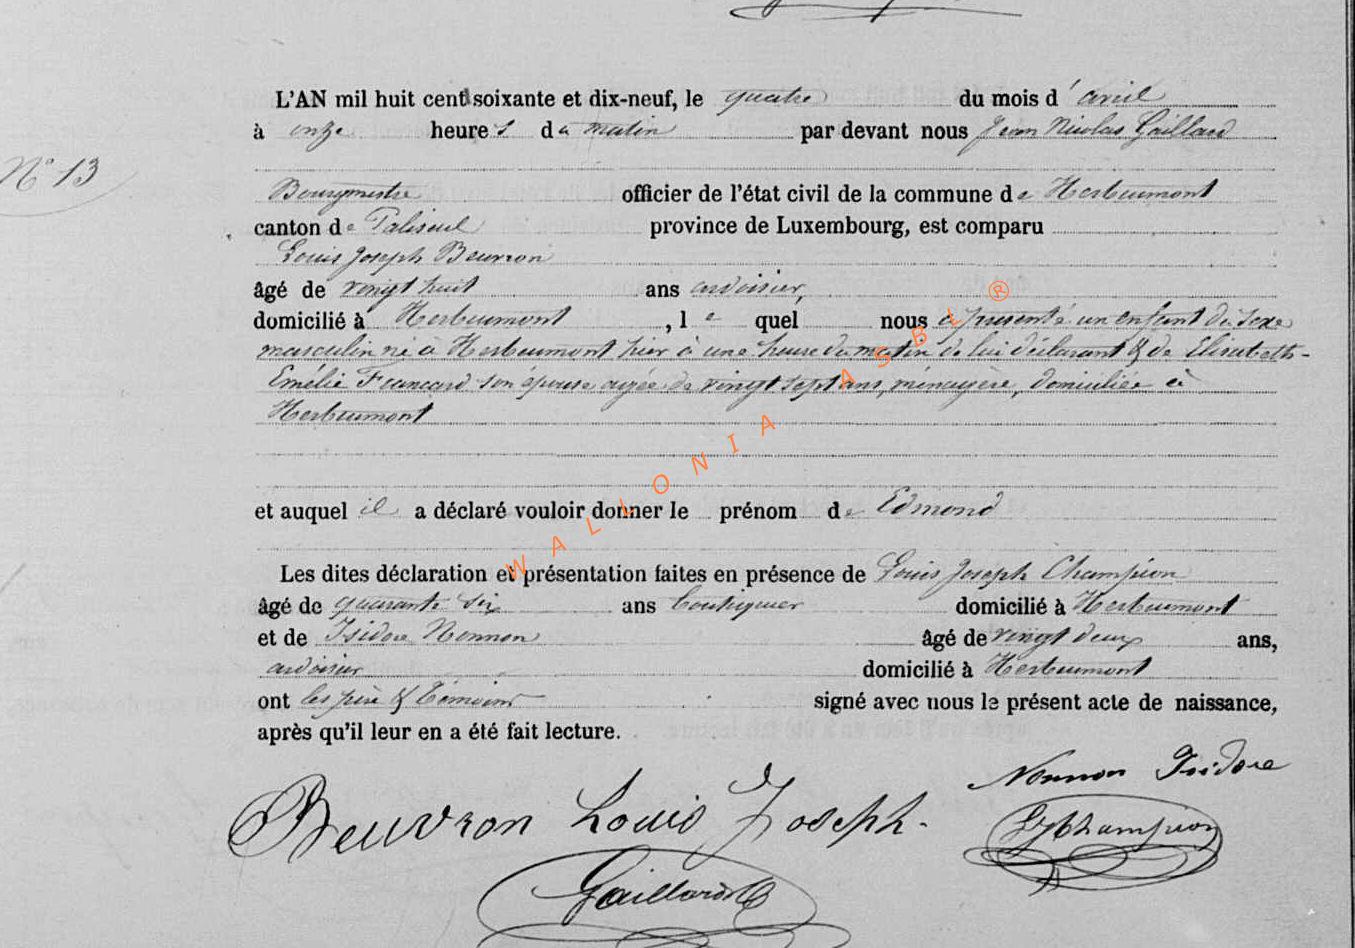 L'AN mil huit cent soixante et dix-neuf, le quatre du mois d'avril
à onze heures du matin par devant nous Jean Nicolas Gaillard
N° 13
Bourgmestre officier de l'état civil de la commune de Herbeumont
canton de Paliseul province de Luxembourg, est comparu
Louis Joseph Beuvron
âgé de vingt huit ans ardoisier,
domicilié à Herbeumont, lequel nous a présenté un enfant du sexe
masculin né à Herbeumont hier à une heure du matin de lui déclarant & de Élisabeth-
Emélie Francard son épouse agée de vingt sept ans, ménagère, domiciliée à
Herbeumont
et auquel il a déclaré vouloir donner le prénom de Edmond
Les dites déclaration et présentation faites en présence de Louis Joseph Champion
âgé de quarante six ans boutiquier domicilié à Herbeumont
et de Isidore Nonnon âgé de vingt deux ans,
ardoisier domicilié à Herbeumont
ont les père & témoins signé avec nous le présent acte de naissance,
après qu'il leur en a été fait lecture.
Nonnon Isidore
Beuvron Louis Joseph.
LJChampion
Gaillard
WALLONIA ASBL ®